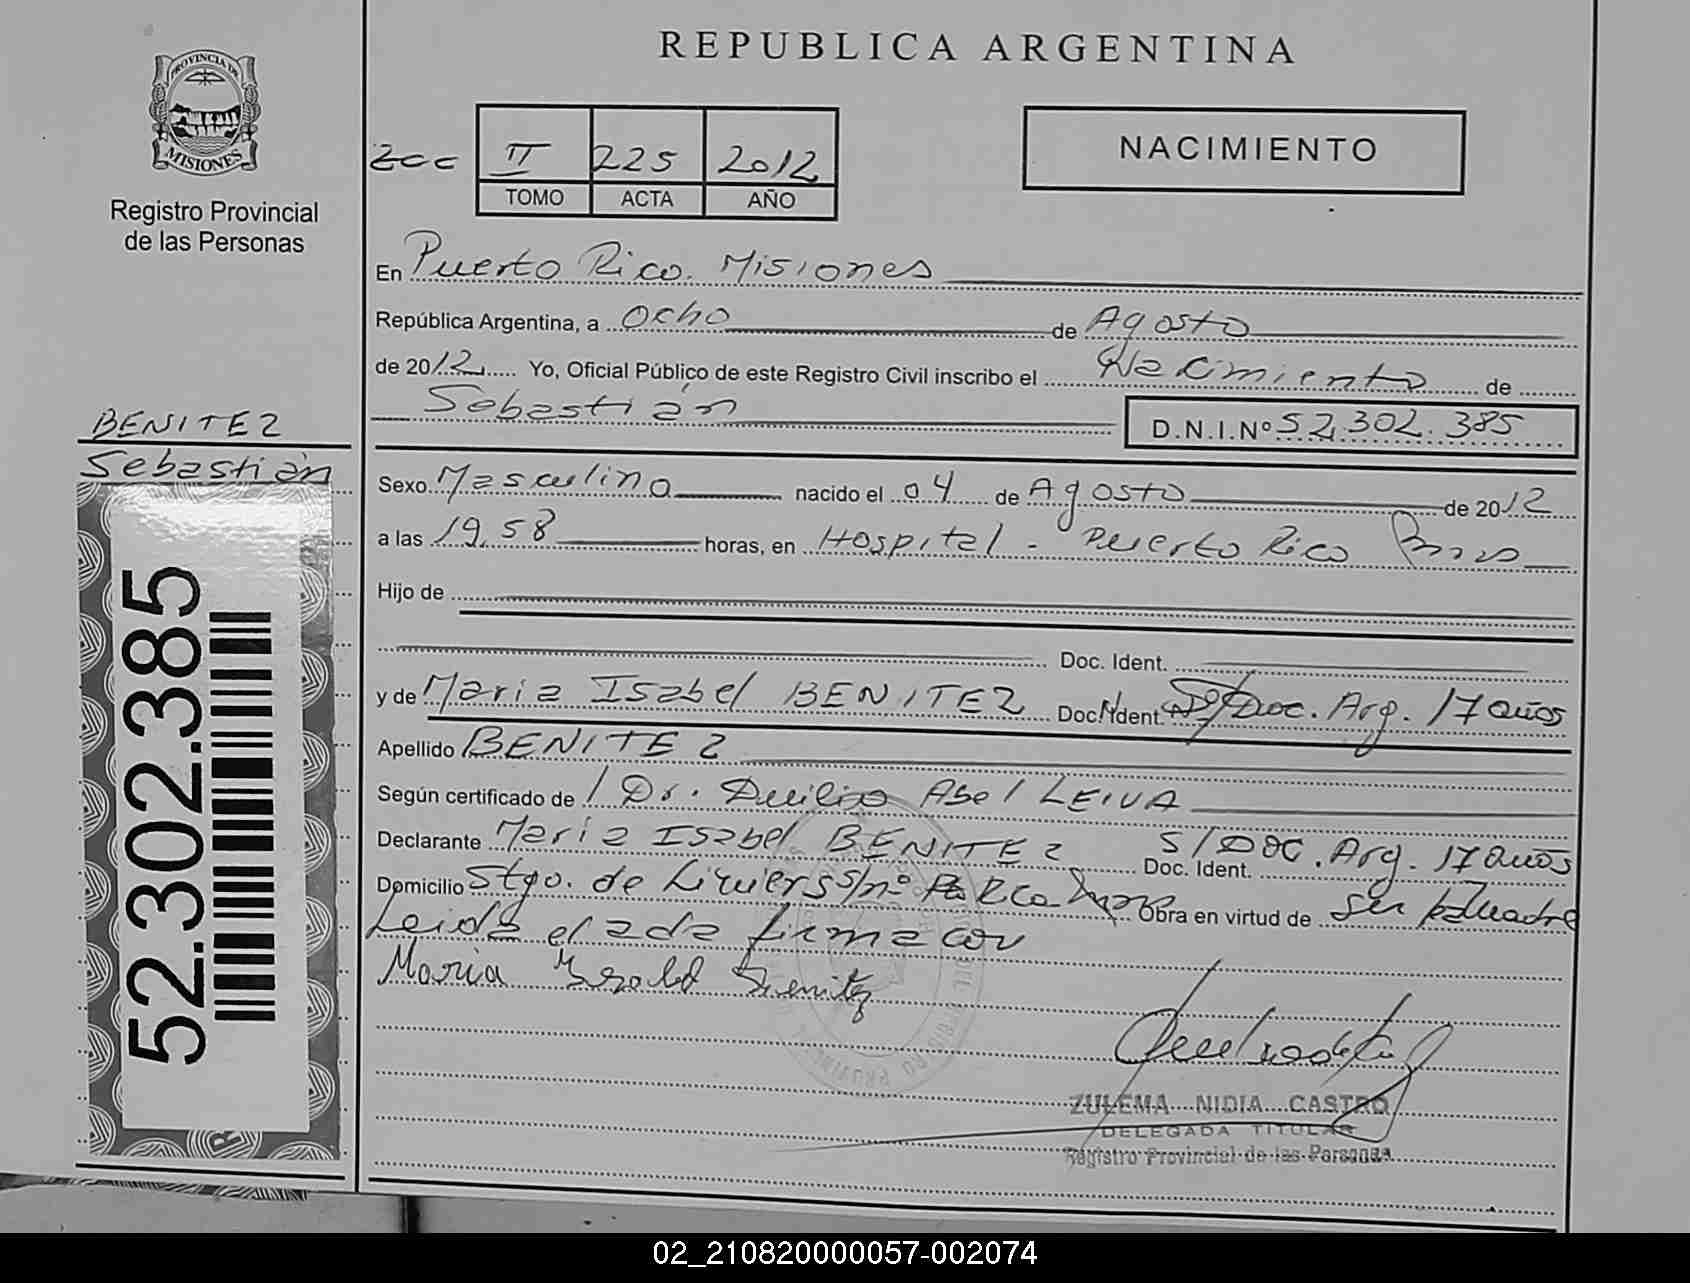 REPUBLICA ARGENTINA
PROVINCIA DE
MISIONES
Registro Provincial
de las Personas
2cc II 225 2012
TOMO ACTA AÑO
NACIMIENTO
En Puerto Rico. Misiones
República Argentina, a Ocho de Agosto
de 2012 Yo, Oficial Público de este Registro Civil inscribo el Nacimiento de
Sebastián
D.N.I.Nº 52.302.385
BENITEZ
Sebastián
Sexo Masculino nacido el 04 de Agosto de 2012
a las 19,58 horas, en Hospital - Puerto Rico
Hijo de
Doc. Ident.
y de Maria Isabel BENITEZ Doc. Ident. S/Doc. Arg. 17 años
Apellido BENITEZ
Según certificado de Dr. Duilio Abel LEIVA
Declarante Maria Isabel BENITEZ Doc. Ident. S/DOC. Arg. 17 años
Domicilio Stgo. de Liniers s/nº Obra en virtud de ser
Leida el acta firma con
Maria Isabel Benitez
ZULEMA NIDIA CASTRO
DELEGADA TITULAR
Registro Provincial de las Personas
52.302.385
02_210820000057-002074